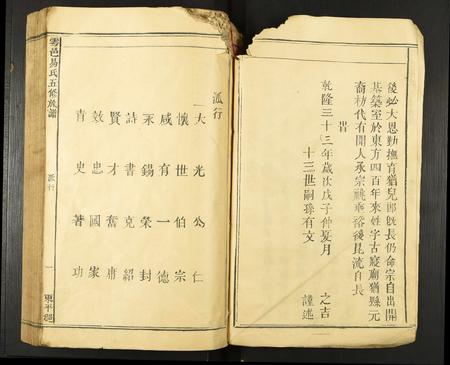 後必大恩勤撫育猶兒郎旣長仍命宗自出開
基築室於東方四百年來姓字古寢廟猶縣元
裔枋代有聞人承宗祧垂裕後昆流自長
旹
乾隆三十三年歲次戊子仲夏月 之吉
十三世嗣孫有文 謹述
派行
大光公仁
懷世伯宗
咸有一德
永錫榮封
詩書克紹
賢才奮庸
效忠國家
青史著功
雩邑易氏五修族譜
派行
一
東平堂